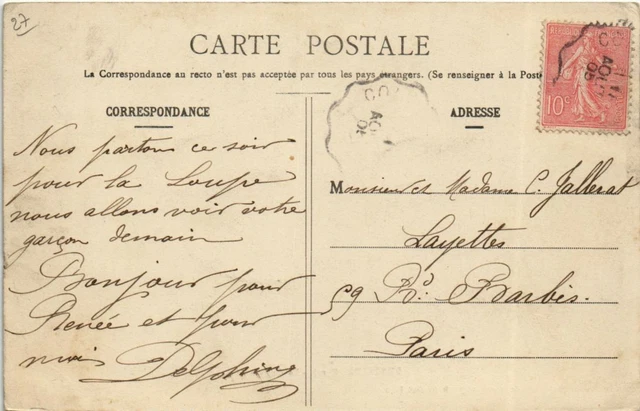 27
CARTE POSTALE
La Correspondance au recto n'est pas acceptée par tous les pays étrangers. (Se renseigner à la Poste
CORRESPONDANCE
ADRESSE
Nous partons ce soir
pour la Loupe
nous allons voir votre
garçon demain
Bonjour pour
Renée et pour
moi Delphine
Monsieur et Madame C. Jallerat
Layettes
59 Bd. Barbès.
Paris
10c
CO
AOU
05
CO
AOUT
05